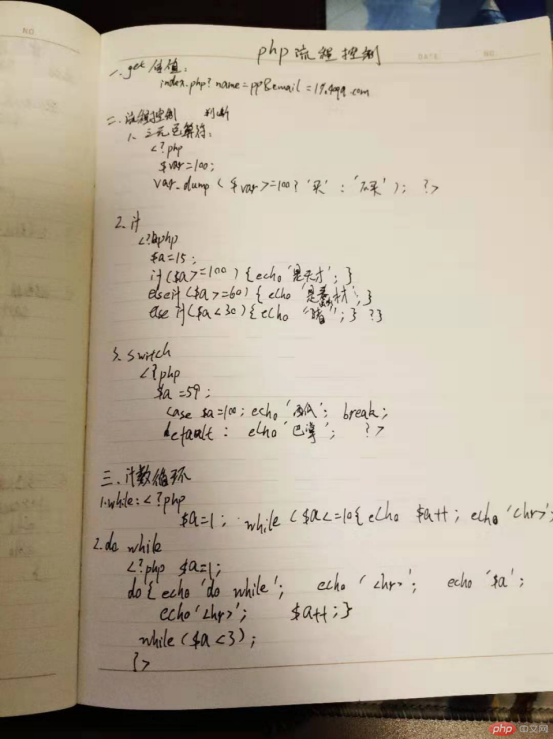 NO.
php 流程控制
DATE. NO.
一. get 传值:
index.php? name=pp&email=17.@qq.com
二. 流程控制 判断
1. 三元运算符:
<?php
$var=100;
var_dump ($var>=100? '买' : '不买'); ?>
2. if
<?php
$a=15;
if ($a>=100) { echo '是天才'; }
elseif ($a>=60) { echo '是 才'; }
else if ($a<30) { echo ''; } ?>
3. switch
<?php
$a=59;
case $a=100; echo ''; break;
default: echo ''; ?>
三. 计数循环
1. while: <?php
$a=1; while ($a<=10{ echo $a++; echo '<hr>';
2. do while
<?php $a=1;
do{ echo 'do while'; echo '<hr>'; echo '$a';
echo '<hr>'; $a++; }
while ($a<3);
?>
php 中文网